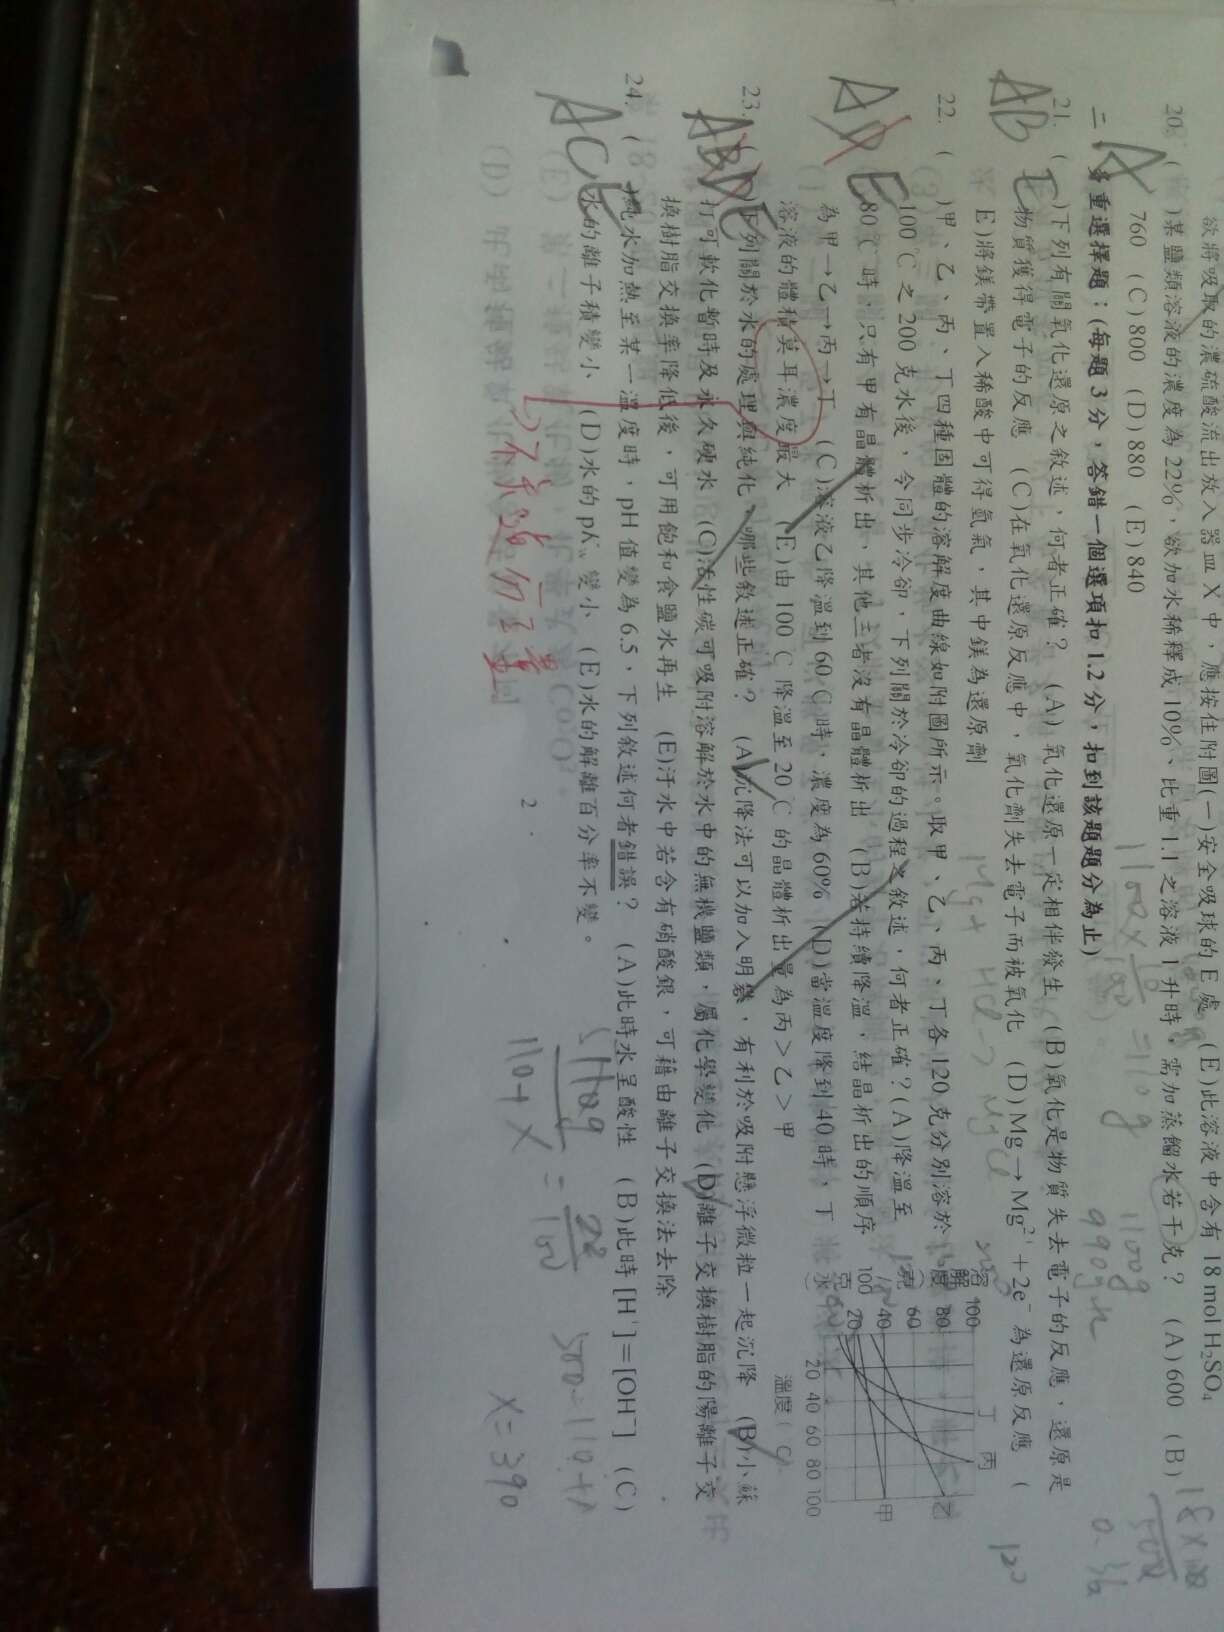 欲將吸取的濃硫酸流出放入器皿 X 中，應按住附圖(一)安全吸球的 E 處 (E)此溶液中含有 18 mol H₂SO₄
20. ( )某鹽類溶液的濃度為 22%，欲加水稀釋成 10%、比重 1.1 之溶液 1 升時，需加蒸餾水若干克？ (A)600 (B)
760 (C)800 (D)880 (E)840
A
二、多重選擇題：(每題 3 分，答錯一個選項扣 1.2 分，扣到該題題分為止)
21. ( )下列有關氧化還原之敘述，何者正確？ (A)氧化還原一定相伴發生 (B)氧化是物質失去電子的反應，還原是
物質獲得電子的反應 (C)在氧化還原反應中，氧化劑失去電子而被氧化 (D)Mg→Mg²⁺+2e⁻ 為還原反應 (
E)將鎂帶置入稀酸中可得氫氣，其中鎂為還原劑
AB E
22. ( )甲、乙、丙、丁四種固體的溶解度曲線如附圖所示。取甲、乙、丙、丁各 120 克分別溶於
100℃之 200 克水後，令同步冷卻，下列關於冷卻的過程之敘述，何者正確？(A)降溫至
80℃時，只有甲有晶體析出，其他三者沒有晶體析出 (B)若持續降溫，結晶析出的順序
為甲→乙→丙→丁 (C)溶液乙降溫到 60℃時，濃度為 60% (D)當溫度降到 40 時，丁
溶液的體積莫耳濃度最大 (E)由 100℃降溫至 20℃的晶體析出量為丙＞乙＞甲
溶解度(克/100克水)
100
80
60
40
20
20 40 60 80 100
溫度(℃)
丁 丙 乙 甲
23. ( )下列關於水的處理與純化，哪些敘述正確？ (A)沉降法可以加入明礬，有利於吸附懸浮微粒一起沉降 (B)小蘇
打可軟化暫時及永久硬水 (C)活性碳可吸附溶解於水中的無機鹽類，屬化學變化 (D)離子交換樹脂的陽離子交
換樹脂交換率降低後，可用飽和食鹽水再生 (E)汙水中若含有硝酸銀，可藉由離子交換法去除
24. ( )純水加熱至某一溫度時，pH 值變為 6.5，下列敘述何者錯誤？ (A)此時水呈酸性 (B)此時[H⁺]=[OH⁻] (C)
水的離子積變小 (D)水的 pKw 變小 (E)水的解離百分率不變。
ACE
110+X
X=390
2